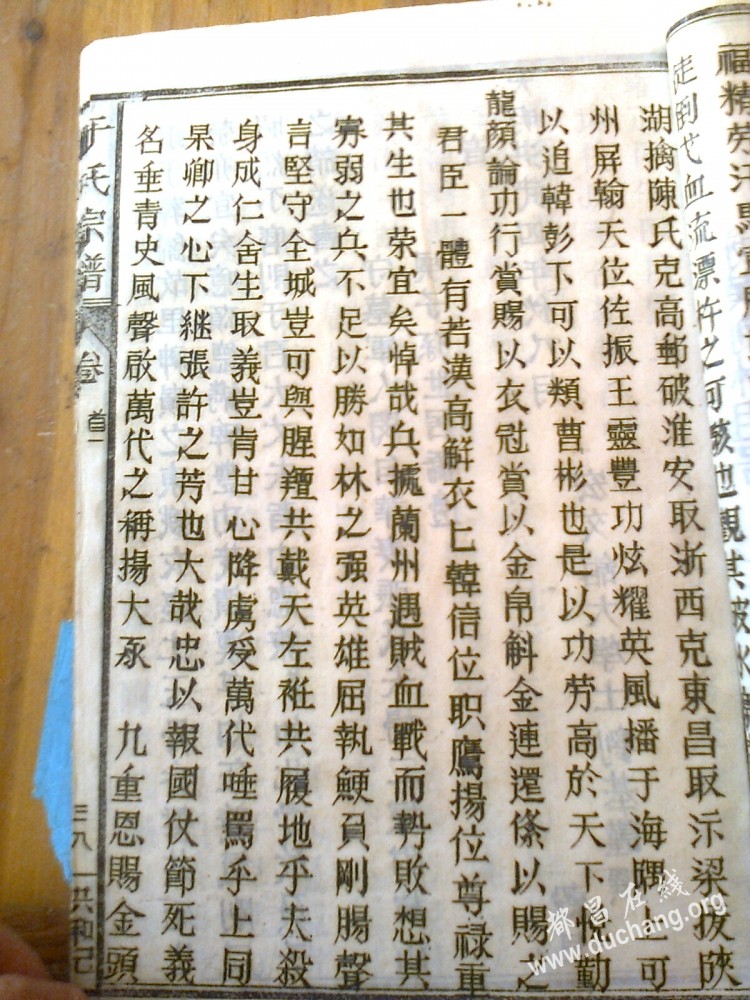 福精勞汗馬
走到戈血流漂杵之可駭也觀其破
湖擒陳氏克高郵破淮安取浙西克東昌取沶梁拔陝
州屏翰天位佐振王靈豐功炫耀英風播于海隅上可
以追韓彭下可以類曹彬也是以功勞高於天下悅勤
龍顏論功行賞賜以衣冠賞以金帛斛金連還絛以賜之
君臣一體有若漢高解衣匕韓信位职鷹揚位尊禄重
其生也荣宜矣悼哉兵擄蘭州遇賊血戰而势敗想其
寡弱之兵不足以勝如林之强英雄屈執鯁員剛腸聲
言堅守全城豈可與腥羶共戴天左袵共履地乎夫殺
身成仁舍生取義豈肯甘心降虜受萬代唾罵乎上同
杲卿之心下継張許之芳也大哉忠以報國仗節死義
名垂青史風聲啟萬代之稱揚大豕 九重恩賜金頭
于氏宗譜 卷首一 三八 共和己
都昌在线
www.duchang.org